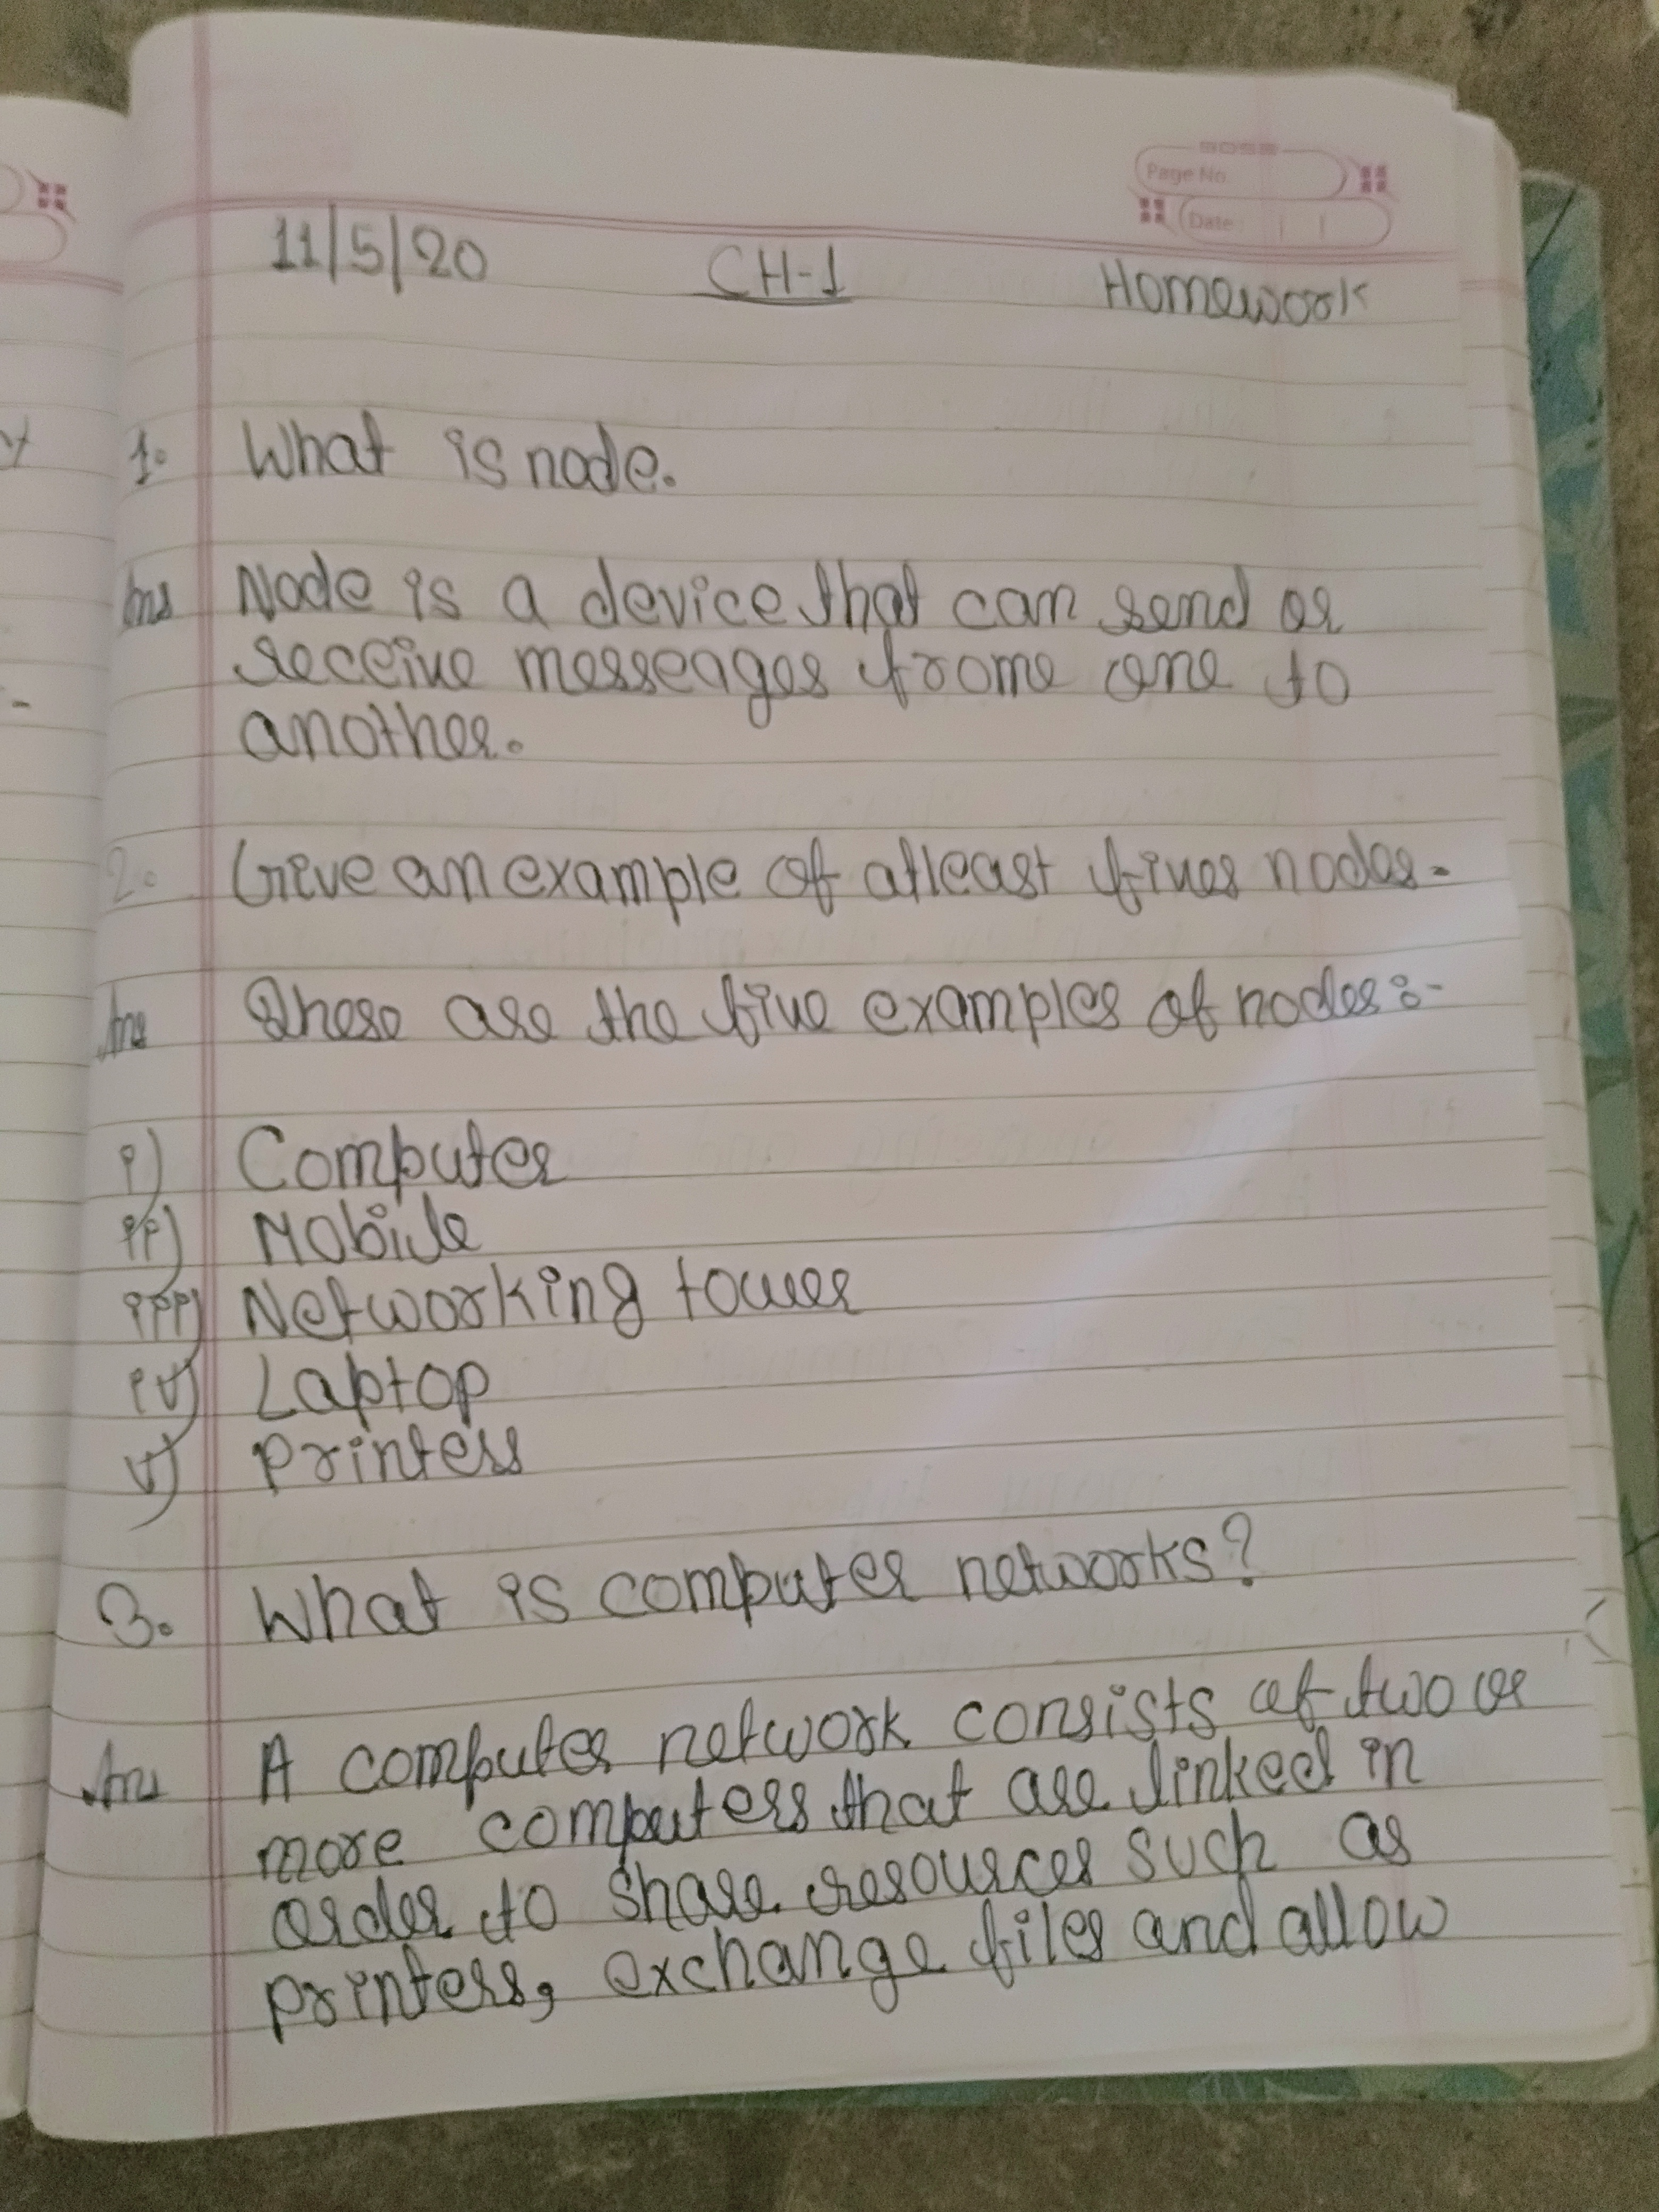 Page No
Date
11/5/20 CH-1 Homework
1. What is node.
Ans Node is a device that can send or
receive messeages frome one to
another.
2. Give an example of atleast fives nodes.
Ans These are the five examples of nodes:-
i) Computer
ii) Mobile
iii) Networking tower
iv) Laptop
v) Printers
3. What is computer networks?
Ans A computer network consists of two or
more computers that are linked in
order to share resources such as
printers, exchange files and allow